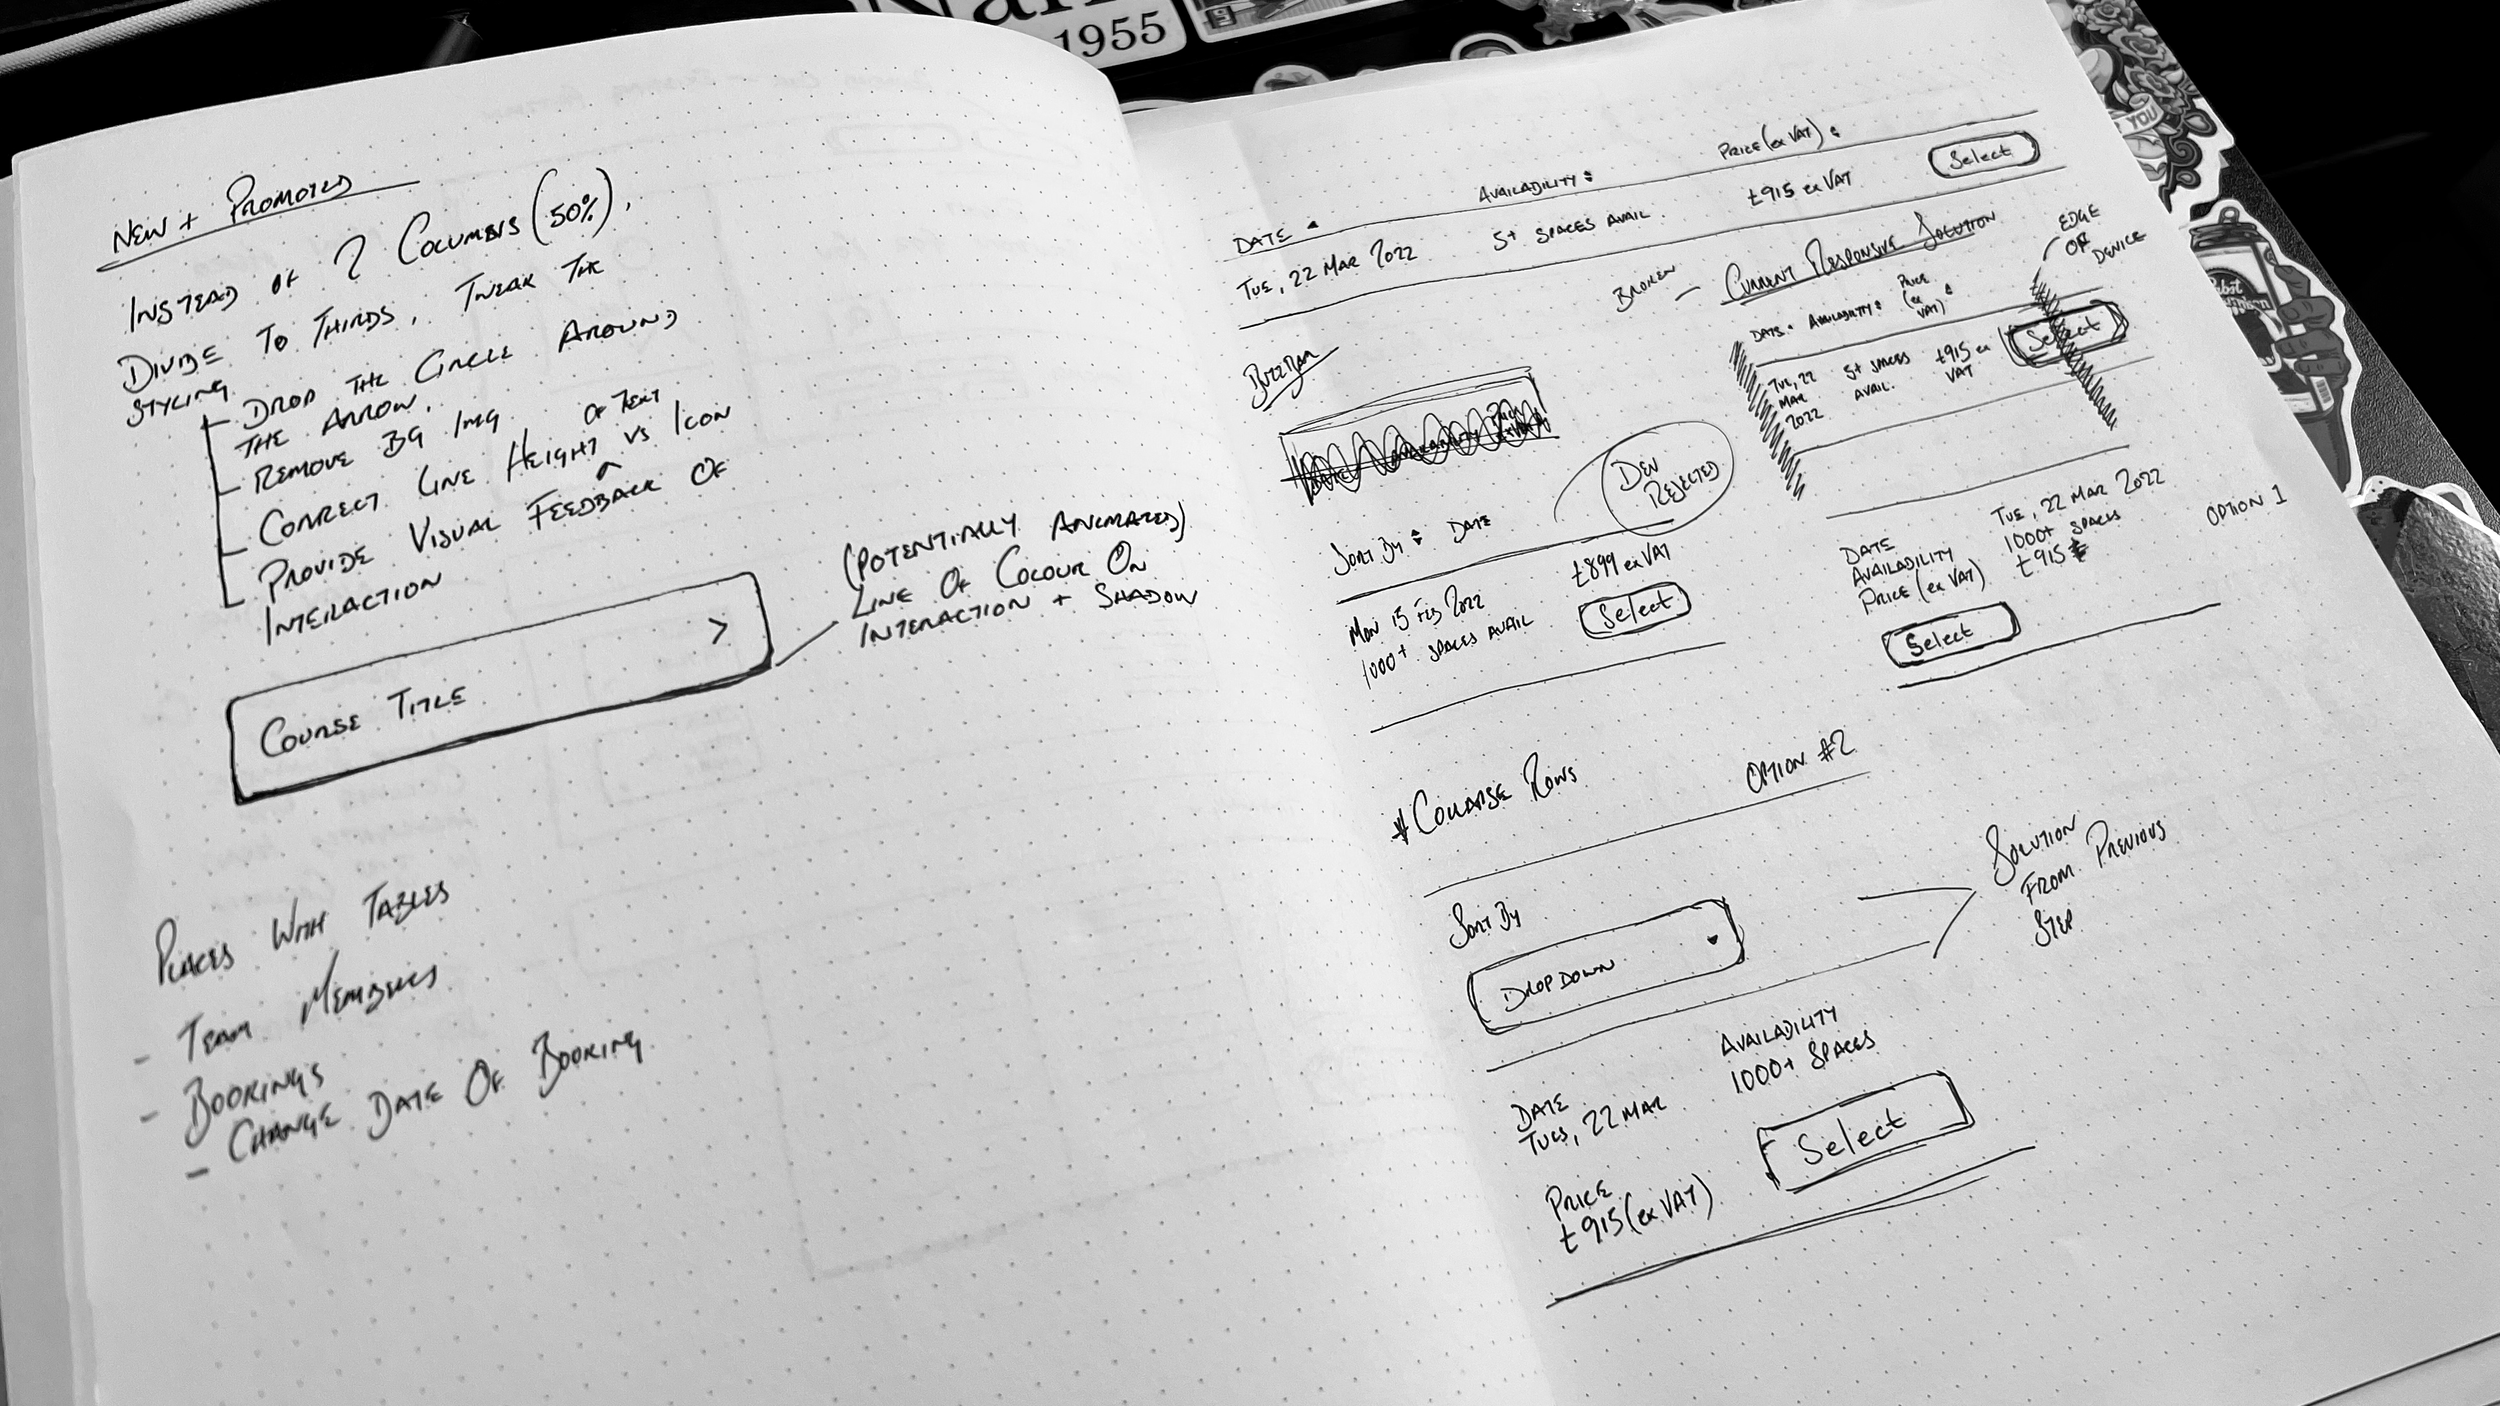 1955
YOU
NEW + PROMOTED
INSTEAD OF 2 COLUMNS (50%),
DIVIDE TO THIRDS, TWEAK THE
STYLING
DROP THE CIRCLE AROUND
THE ARROW.
- REMOVE BG IMG
OF TEXT
- CORRECT LINE HEIGHT ^ VS ICON
PROVIDE VISUAL FEEDBACK OF
INTERACTION
COURSE TITLE >
(POTENTIALLY ANIMATED)
LINE OF COLOUR ON
INTERACTION + SHADOW
PLACES WITH TABLES
- TEAM MEMBERS
- BOOKINGS
- CHANGE DATE OF BOOKING
DATE AVAILABILITY PRICE (ex VAT)
TUE, 22 MAR 2022 5+ SPACES AVAIL. £915 ex VAT Select
BROKEN — CURRENT RESPONSIVE SOLUTION
EDGE
OF
DEVICE
DATE AVAILABILITY PRICE
(ex
VAT)
TUE, 22 5+ SPACES £915 ex Select
MAR AVAIL. VAT
2022
DEV
REJECTED
SORT BY DATE
MON 15 FEB 2022 £899 ex VAT
1000+ SPACES AVAIL Select
DATE TUE, 22 MAR 2022
AVAILABILITY 1000+ SPACES
PRICE (ex VAT) £915
OPTION 1
Select
COLLAPSE ROWS OPTION #2
SORT BY
DROPDOWN
SOLUTION
FROM PREVIOUS
STEP
DATE AVAILABILITY
TUES, 22 MAR 1000+ SPACES
PRICE
£915 (ex VAT) Select